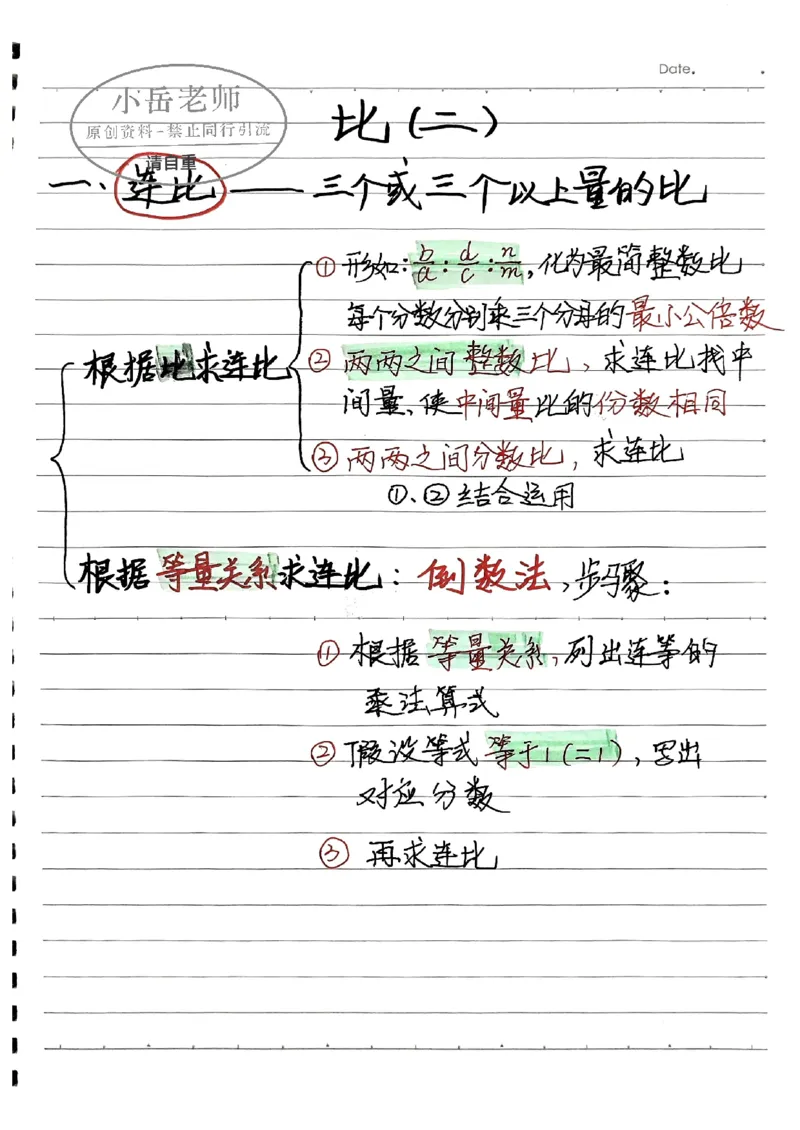 Date.
小岳老师
原创资料-禁止同行引流
请自重
比(二)
一、连比——三个或三个以上量的比
根据比求连比
①形如:b/a:d/c:n/m,化为最简整数比
每个分数分别乘三个分母的最小公倍数
②两两之间整数比,求连比找中
间量、使中间量比的份数相同
③两两之间分数比,求连比
①、②结合运用
根据等量关系求连比:倒数法,步骤:
①根据等量关系,列出连等的
乘法算式
②假设等式等于1(=1),写出
对应分数
③再求连比